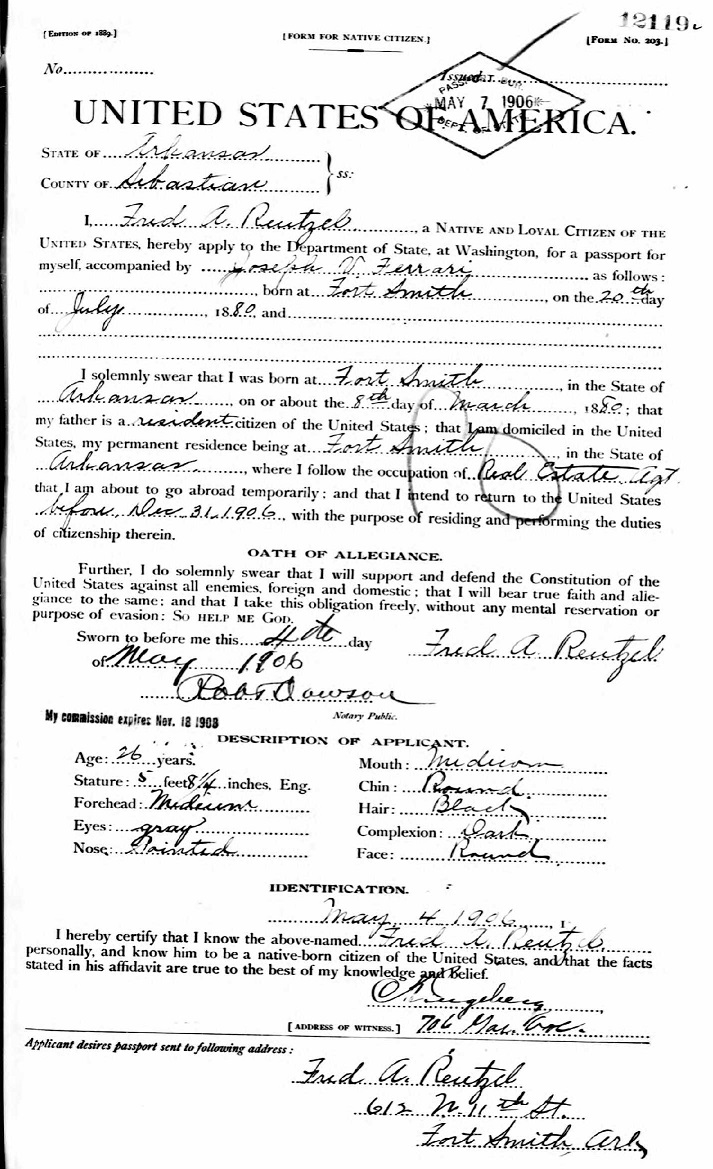 12119
[EDITION OF 1889.]
[FORM FOR NATIVE CITIZEN.]
[FORM NO. 203.]
No.
Issued
PASSPORT BUR.
MAY 7 1906
DEPT. OF STATE
UNITED STATES OF AMERICA.
STATE OF Arkansas
COUNTY OF Sebastian
ss:
I, Fred A. Rentzel, a NATIVE AND LOYAL CITIZEN OF THE
UNITED STATES, hereby apply to the Department of State, at Washington, for a passport for
myself, accompanied by Joseph V. Ferrari as follows:
, born at Fort Smith, on the 20th day
of July, 1880, and
I solemnly swear that I was born at Fort Smith, in the State of
Arkansas, on or about the 8th day of March, 1880; that
my father is a resident citizen of the United States; that I am domiciled in the United
States, my permanent residence being at Fort Smith, in the State of
Arkansas, where I follow the occupation of Real Estate Agt
that I am about to go abroad temporarily; and that I intend to return to the United States
before Dec 31, 1906, with the purpose of residing and performing the duties
of citizenship therein.
OATH OF ALLEGIANCE.
Further, I do solemnly swear that I will support and defend the Constitution of the
United States against all enemies, foreign and domestic; that I will bear true faith and alle-
giance to the same; and that I take this obligation freely, without any mental reservation or
purpose of evasion: SO HELP ME GOD.
Sworn to before me this 4th day
Fred A Rentzel
of May 1906
Robt Dawson
Notary Public.
My commission expires Nov. 18 1908
DESCRIPTION OF APPLICANT.
Age: 26 years.
Mouth: Medium
Stature: 5 feet 8 1/4 inches, Eng.
Chin: Round
Forehead: Medium
Hair: Black
Eyes: gray
Complexion: Dark
Nose: Pointed
Face: Round
IDENTIFICATION.
May 4 1906, 1
I hereby certify that I know the above-named Fred A. Rentzel
personally, and know him to be a native-born citizen of the United States, and that the facts
stated in his affidavit are true to the best of my knowledge and belief.
[ADDRESS OF WITNESS.] 706 Gar. Ave.
Applicant desires passport sent to following address:
Fred A. Rentzel
612 N. 11th St.
Fort Smith, Ark